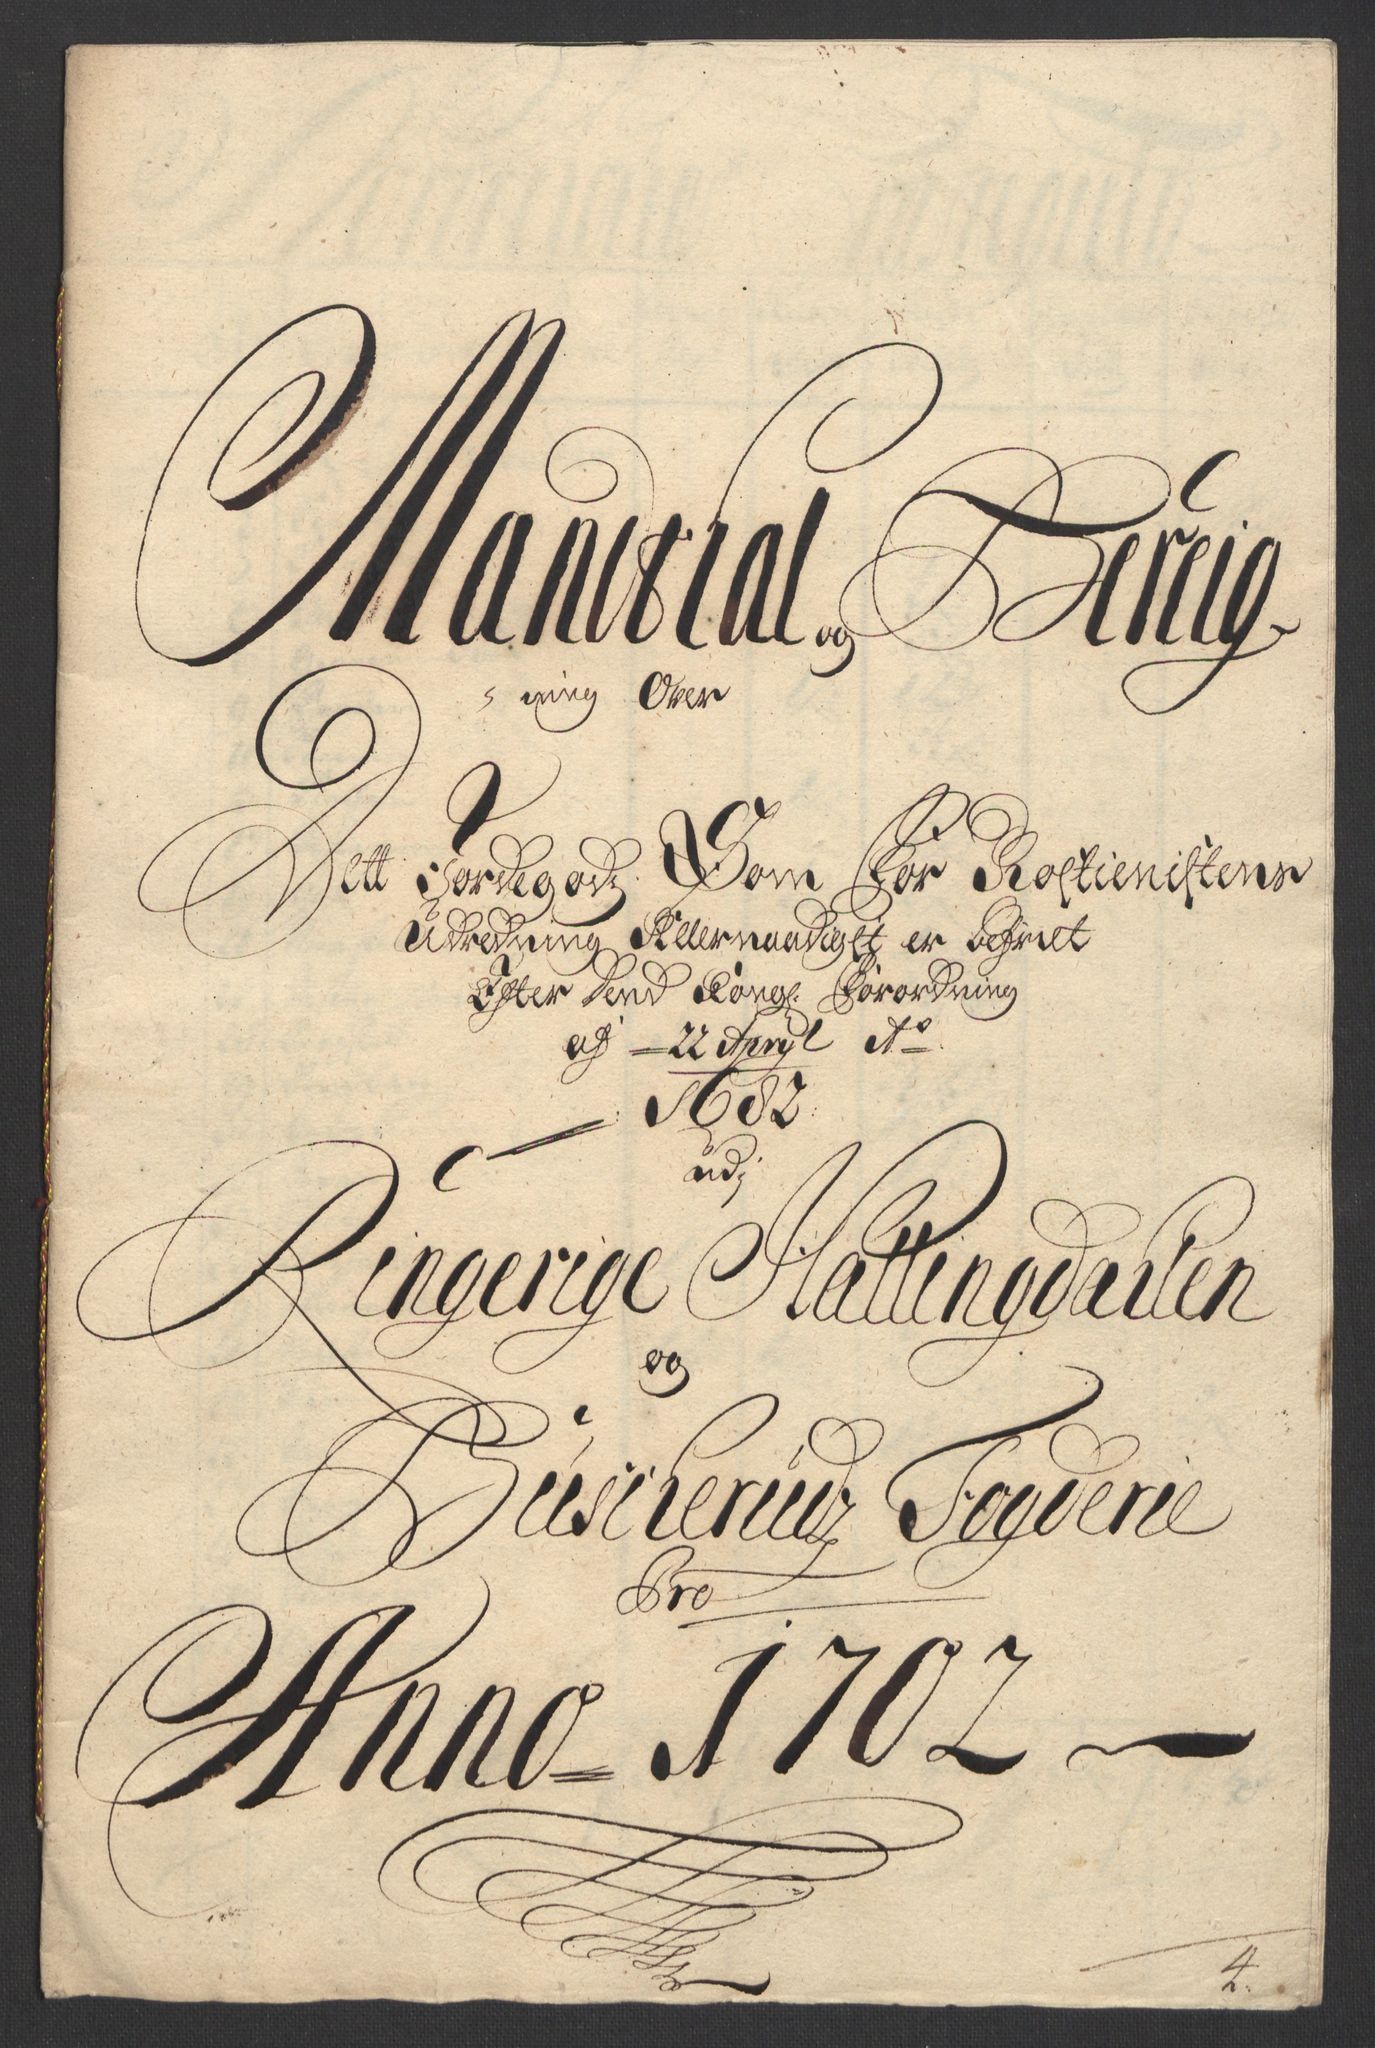 Mandtal og Bereig-
ning Over
Dett Jordegodz Som for Rostienistens
Udredning Allernaadigst er befriet
Efter Dend Kongl. Forordning
af 22 Apryl Ao
1682
udj
Ringerige Hallingdahlen
og
Buscherudz Fogderie
Pro
Anno 1702
4.